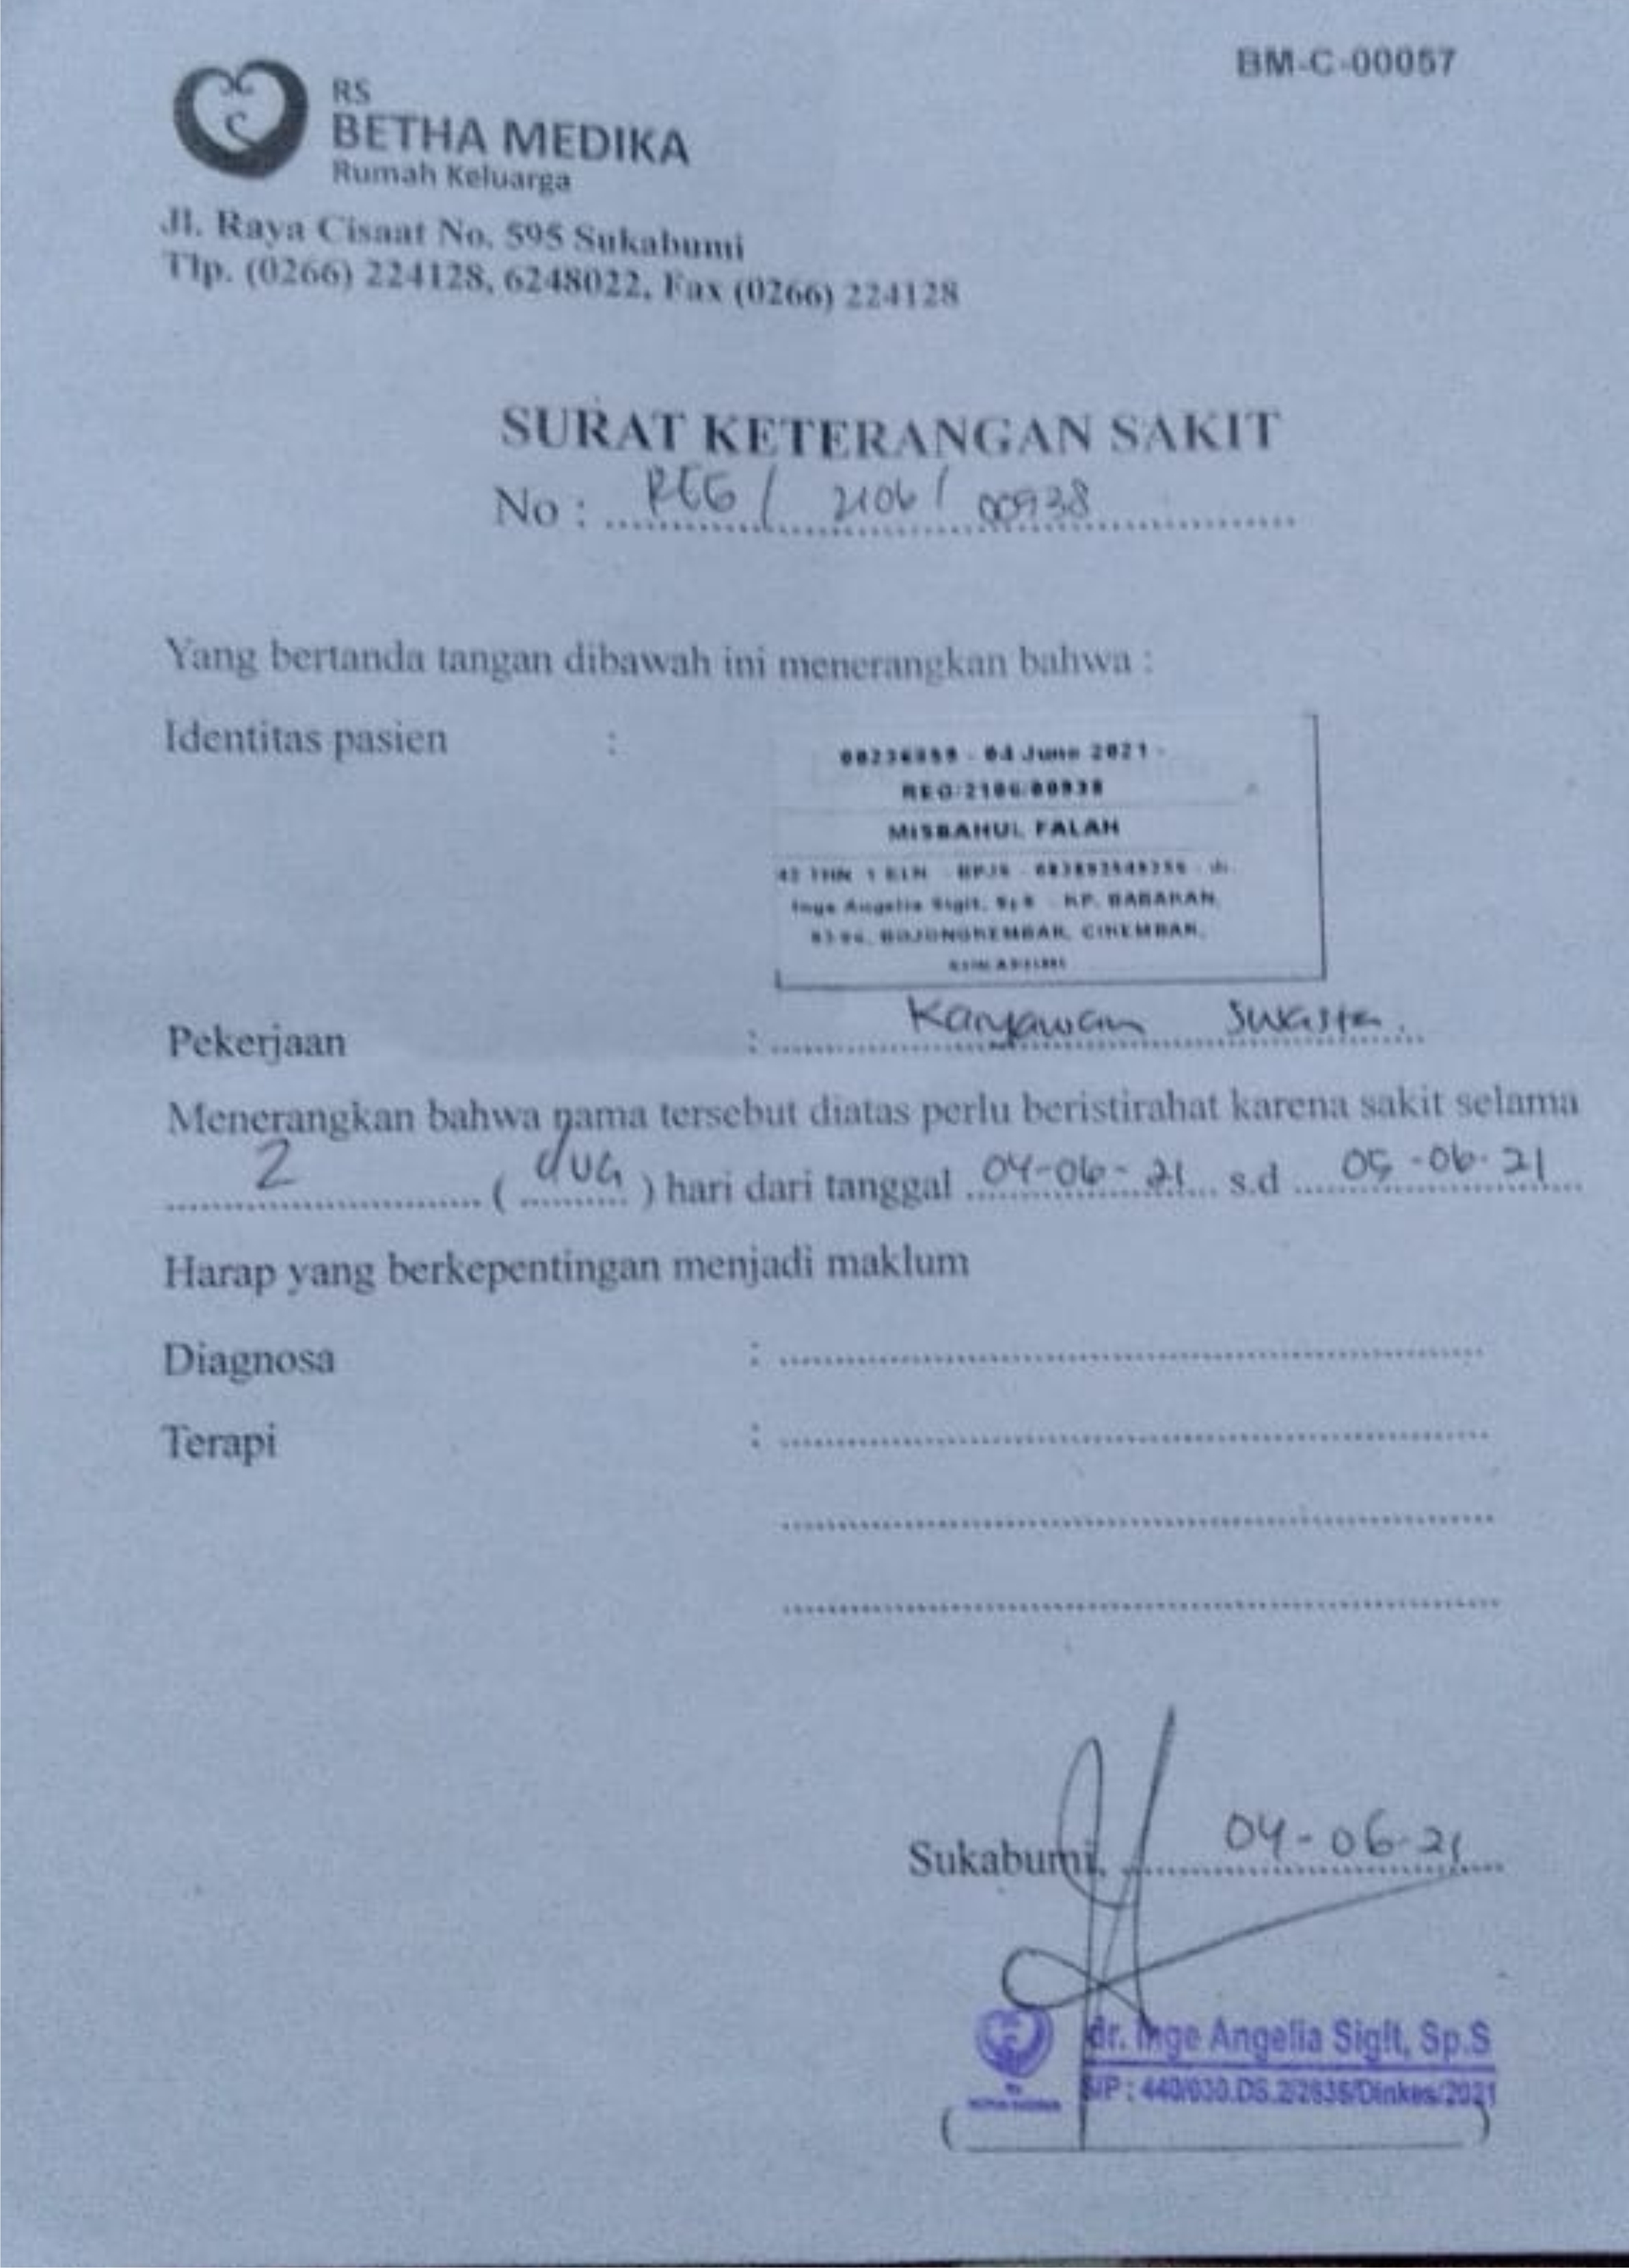 BM-C-00057
RS
BETHA MEDIKA
Rumah Keluarga
Jl. Raya Cisaat No. 595 Sukabumi
Tlp. (0266) 224128, 6248022, Fax (0266) 224128
SURAT KETERANGAN SAKIT
No : REG / 2106 / 00938
Yang bertanda tangan dibawah ini menerangkan bahwa :
Identitas pasien :
04 June 2021 -
REG/2106/00938
MISBAHUL FALAH
42 THN 1 BLN - BPJS - dr.
Inge Angelia Sigit, Sp.S - KP. BABAKAN,
BOJONGKEMBAR, CIKEMBAR,
SUKABUMI
Pekerjaan : Karyawan Swasta.
Menerangkan bahwa nama tersebut diatas perlu beristirahat karena sakit selama
2 ( dua ) hari dari tanggal 04-06-21 s.d 05-06-21
Harap yang berkepentingan menjadi maklum
Diagnosa :
Terapi :
Sukabumi, 04-06-21
dr. Inge Angelia Sigit, Sp.S
SIP : /Dinkes/2021
RS
BETHA MEDIKA